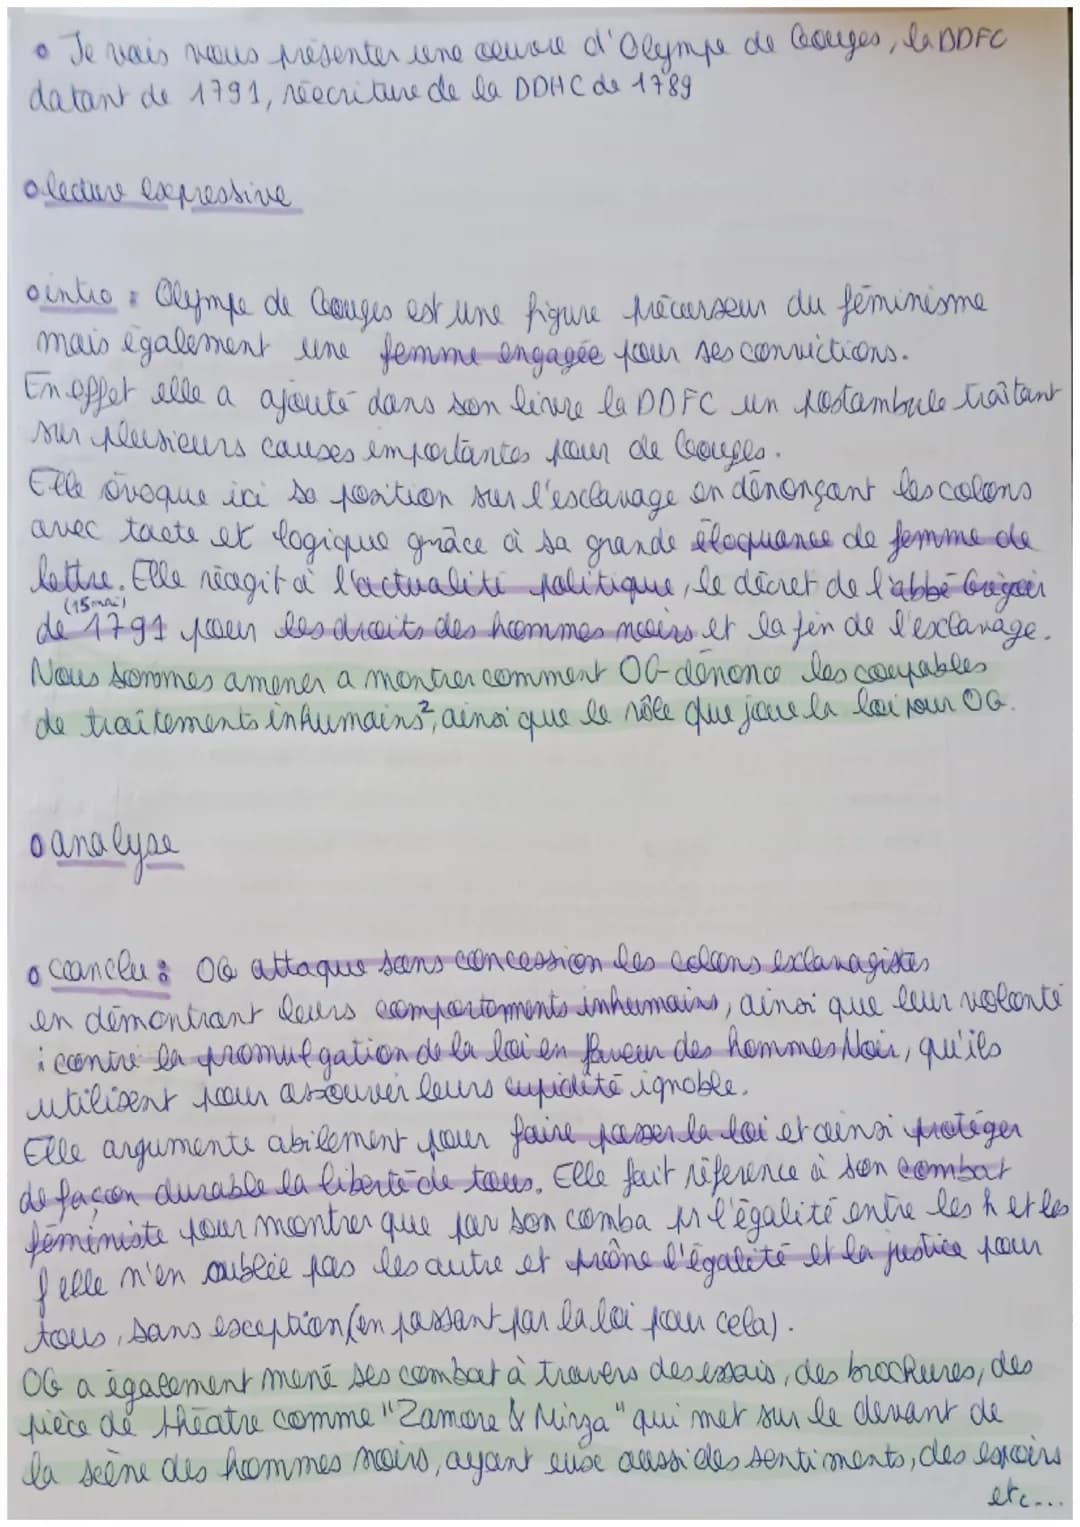 Je vais vous présenter une œuvre d'Olympe de Gouges, la DDFC
datant de 1791, réécriture de la DDHC de 1789
lecture expressive
intro : Olympe de Gouges est une figure précurseur du féminisme
mais également une femme engagée pour ses convictions.
En effet elle a ajouté dans son livre la DDFC un postambule traîtant
sur plusieurs causes importantes pour de Gouges.
Elle évoque ici sa position sur l'esclavage en dénonçant les colons
avec tacte et logique grâce à sa grande éloquance de femme de
lettre. Elle réagit à l'actualité politique, le décret de l'abbé Grégoir
(15 mai)
de 1791 pour les droits des hommes noirs et la fin de l'esclavage.
Nous sommes amener a montrer comment OG dénonce les coupables
de traîtements inhumains², ainsi que le rôle que joue la loi pour OG.
analyse
conclu : OG attaque sans concession les colons esclavagistes
en démontrant leurs comportements inhumains, ainsi que leur volonté
contre la promulgation de la loi en faveur des hommes Noir, qu'ils
utilisent pour assouvir leurs cupidité ignoble.
Elle argumente abilement pour faire passer la loi et ainsi protéger
de façon durable la liberté de tous. Elle fait référence à son combat
féministe pour montrer que par son comba pr l'égalité entre les h et les
f elle n'en oublie pas les autre et prône l'égalité et la justice pour
tous, sans exception (en passant par la loi pour cela).
OG a également mené ses combat à travers des essais, des brochures, des
pièce de théatre comme "Zamore & Mirza" qui met sur le devant de
la scène des hommes noirs, ayant eux aussi des sentiments, des espoirs
etc...